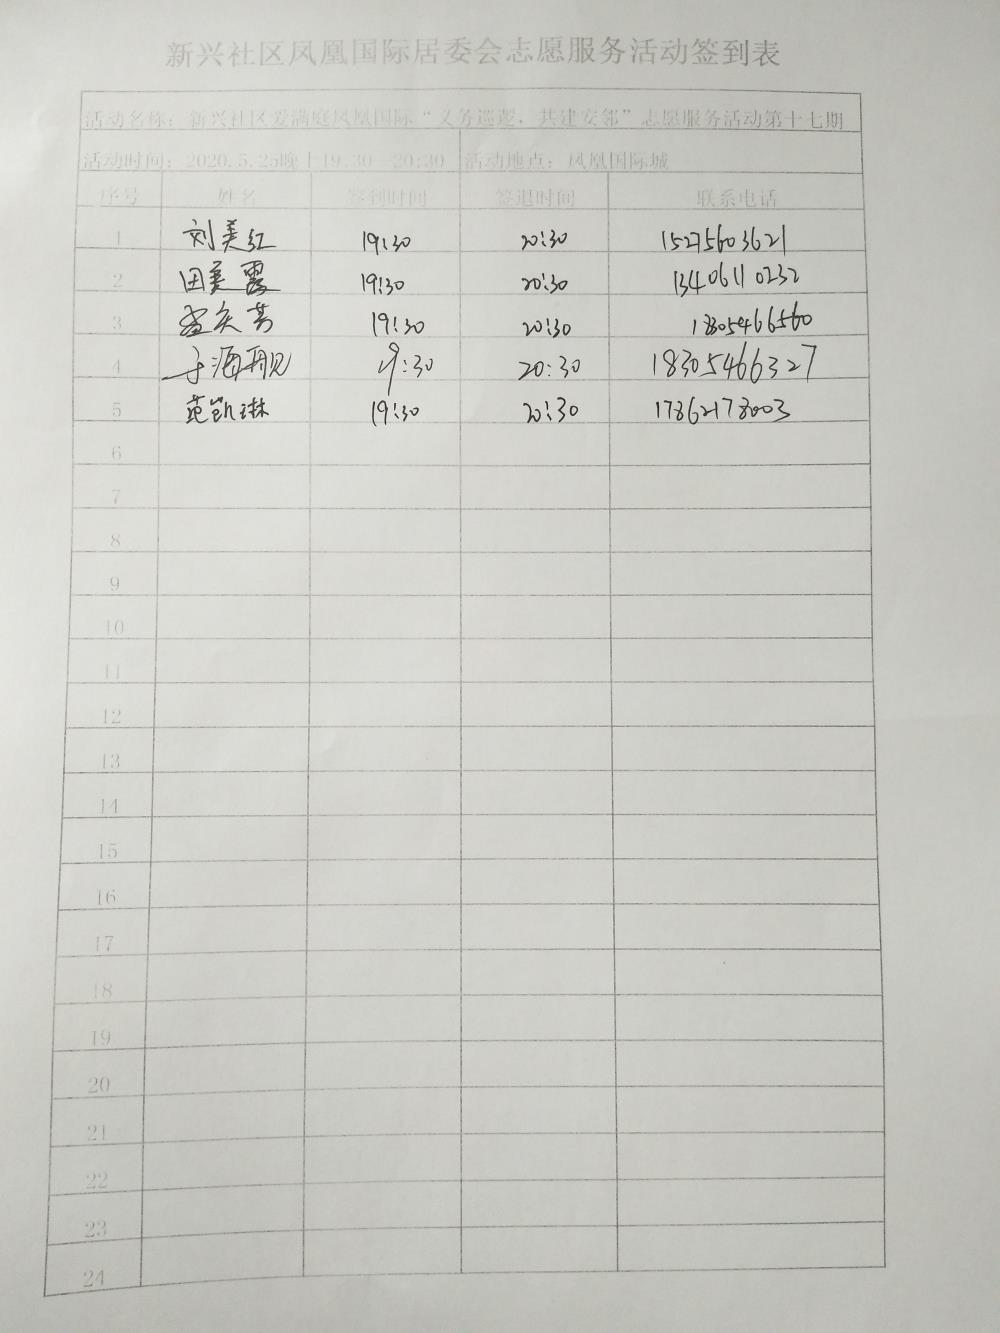 新兴社区凤凰国际居委会志愿服务活动签到表
活动名称：新兴社区爱满庭凤凰国际“义务巡逻，共建安邻”志愿服务活动第十七期
活动时间：2020.5.25晚上19:30—20:30 活动地点：凤凰国际城
序号 姓名 签到时间 签退时间 联系电话
1 刘美红 19:30 20:30 15275603621
2 田美霞 19:30 20:30 13406110232
3 孟庆芳 19:30 20:30 18305466560
4 于海舰 19:30 20:30 18305466327
5 范凯琳 19:30 20:30 17862178003
6
7
8
9
10
11
12
13
14
15
16
17
18
19
20
21
22
23
24